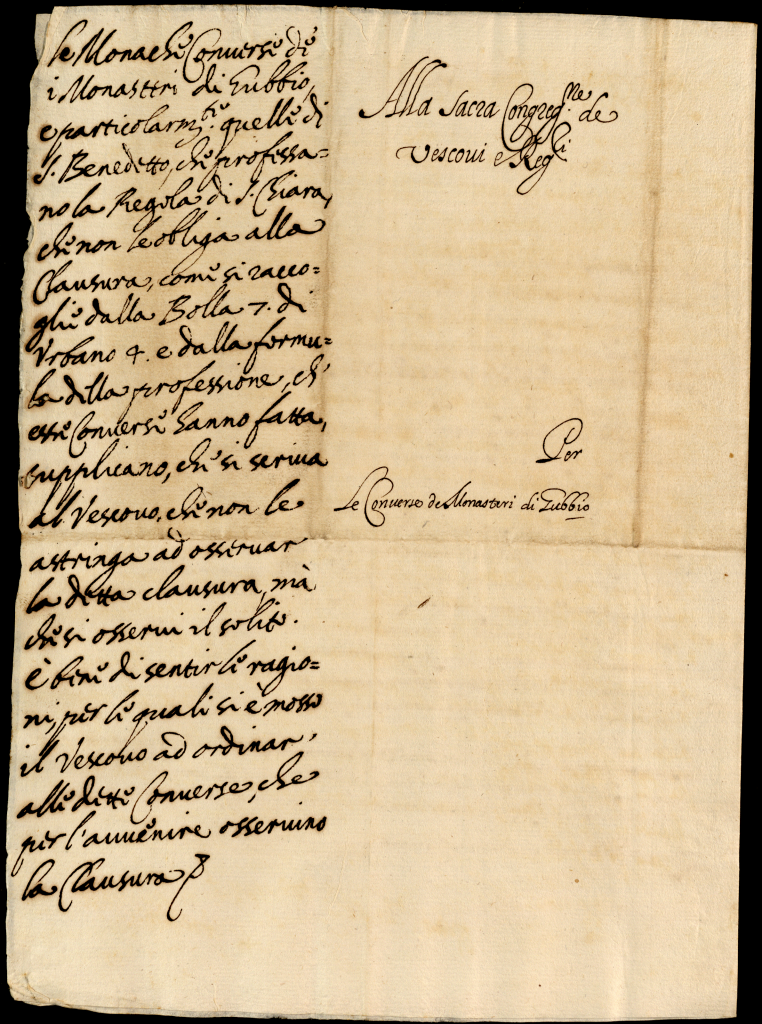 le Monache Converse de
i Monasteri di Gubbio,
e particolarm.te quelle di
S. Benedetto, che professa=
no la Regola di S. Chiara,
che non le obliga alla
Clausura, come si racco=
glie dalla Bolla 7. di
Urbano 4. e dalla formu=
la della professione, ch'
esse Converse hanno fatta,
supplicano, che si scriva
al Vescovo, che non le
astringa ad osservar
la detta clausura, mà
che si osservi il solito.
È bene di sentir le ragio=
ni, per le quali si è mosso
il Vescovo ad ordinar,
alle dette Converse, che
per l'avvenire osservino
la Clausura
Alla Sacra Congreg.ne de
Vescovi e Reg.li
Per
Le Converse de Monasteri di Gubbio